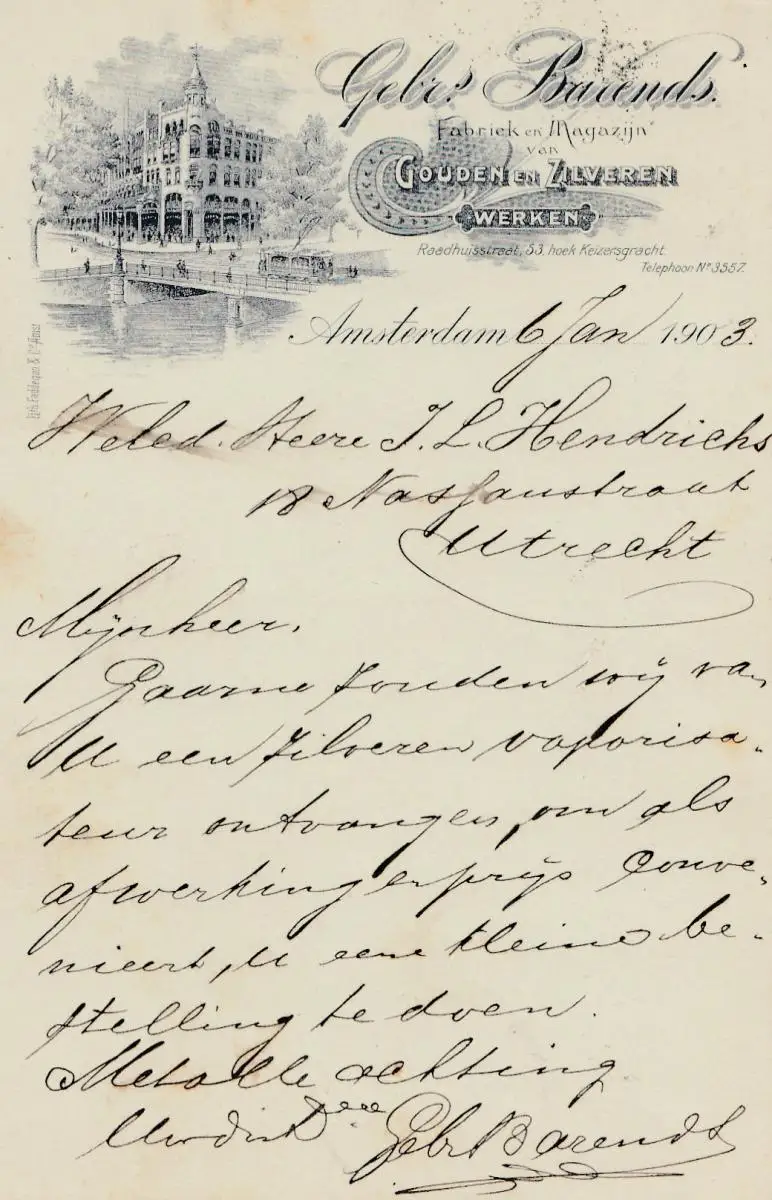 Gebrs. Barends.
Fabriek en Magazijn
van
GOUDEN EN ZILVEREN
WERKEN
Raadhuisstraat, 53, hoek Keizersgracht.
Telephoon No 3557.
Lith. Faddegon & Co Amst
Amsterdam 6 Jan 1903.
Weled. Heere J. L. Hendrichs
18 Nassaustraat
Utrecht
Mijnheer.
Gaarne zouden wij van
U een zilveren vaporisa-
teur ontvangen, om als
afwerking en prijs conve-
nieert, U eene kleine be-
stelling te doen.
Met alle achting
Gebr Barends